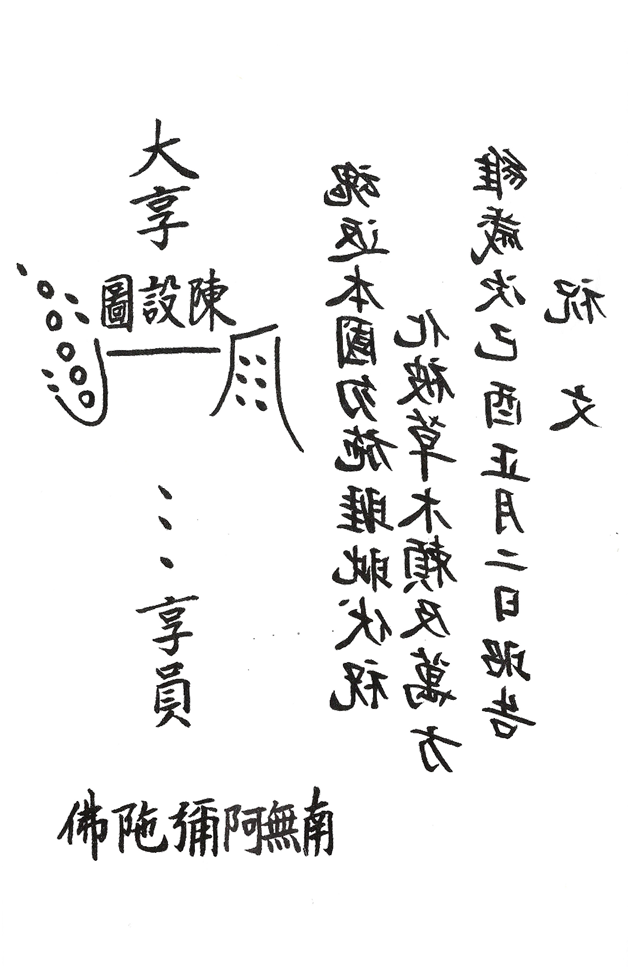 祝文
維歲次己酉正月二日昭告
化被草木賴及萬方
魂返本國勿施睚眦伏祝
大享
陳設圖
享員
南無阿彌陀佛